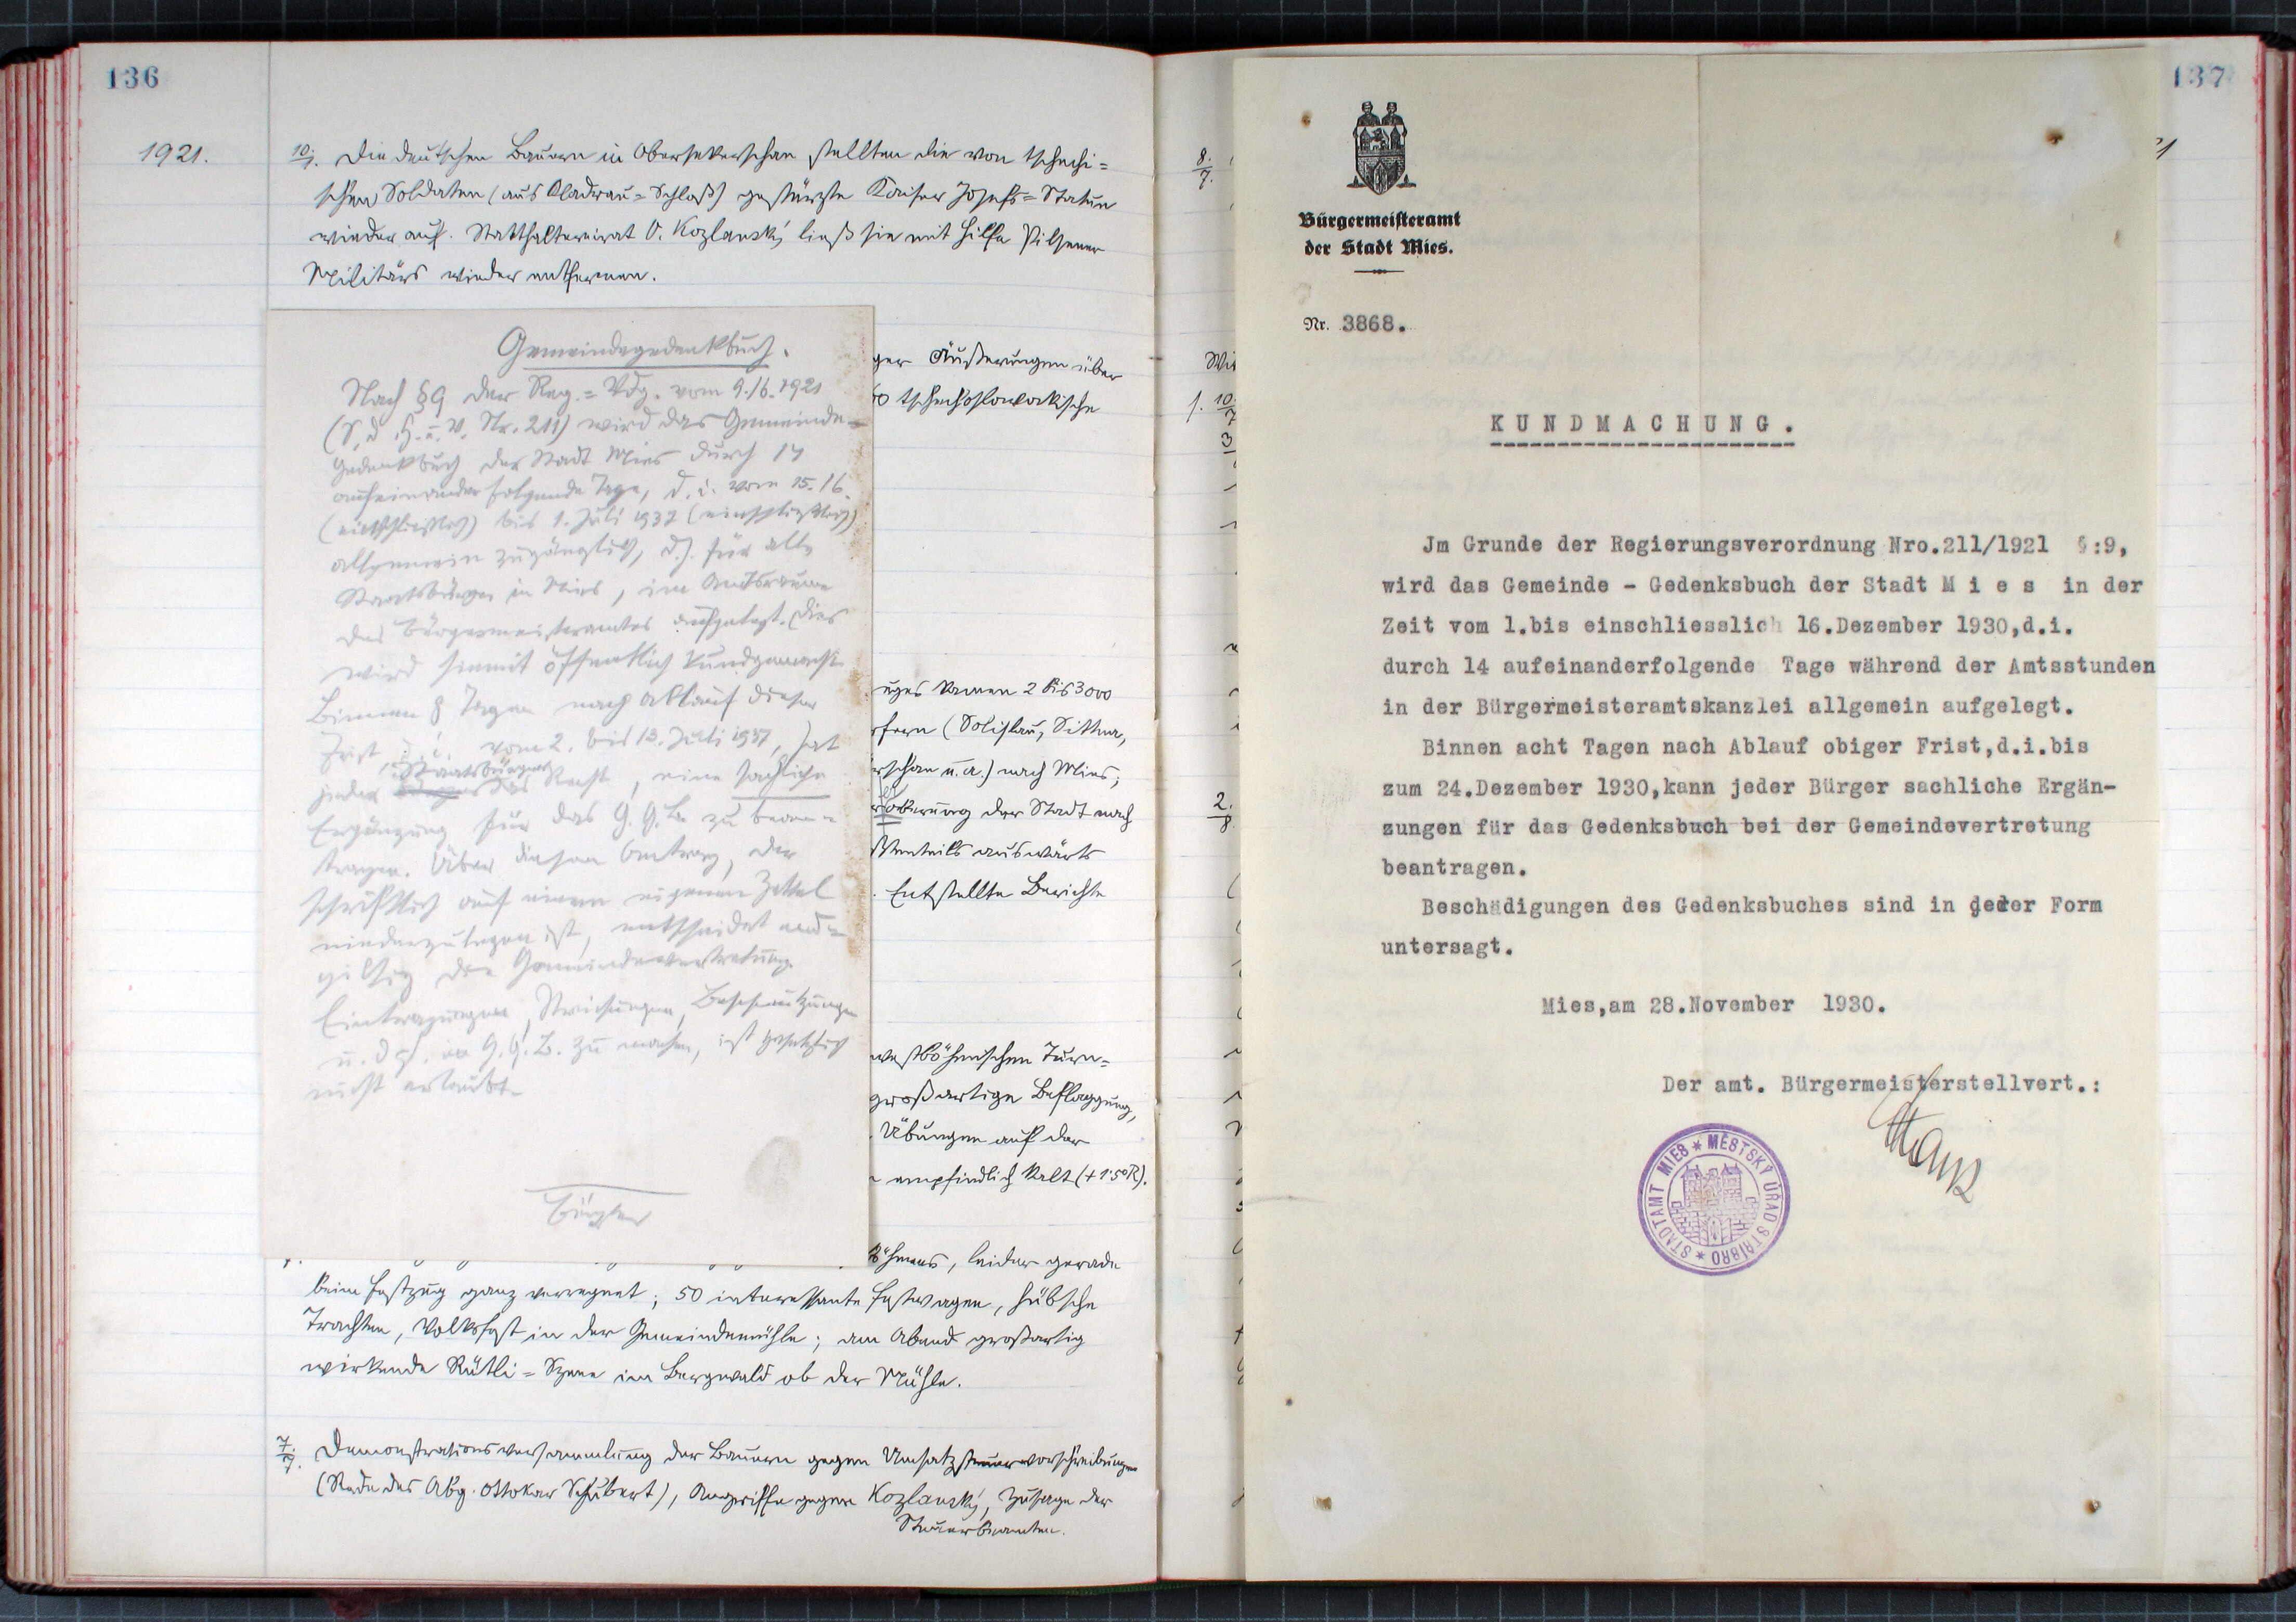 136
1921.
10./7. Die deutschen Bauern in Obersekerschan stellten die von tschechi=
schen Soldaten (aus Kladrau=Schloß) gestürzte Kaiser Josefs=Statue
wieder auf. Statthaltereirat O. Kozlanský ließ sie mit Hilfe Pilsener
Militärs wieder entfernen.
Gemeindegedenkbuch.
Nach §9 der Reg.=Vdg. vom 9./6. 1921
(S. d. G. u. V. Nr. 211) wird das Gemeinde=
gedenkbuch der Stadt Mies durch 14
aufeinander folgende Tage, d. i. vom 15./6.
(einschließlich) bis 1. Juli 1937 (einschließlich)
allgemein zugänglich, d. h. für alle
Staatsbürger in Mies, im Amtsraume
des Bürgermeisteramtes aufgelegt. Dies
wird hiemit öffentlich kundgemacht.
Binnen 8 Tagen nach Ablauf dieser
Frist, d. i. vom 2. bis 13. Juli 1937, hat
jeder Staatsbürger das Recht, eine sachliche
Ergänzung für das G. G. B. zu bean=
tragen. Über diesen Antrag, der
schriftlich auf einem eigenen Zettel
niederzulegen ist, entscheidet end=
giltig die Gemeindevertretung.
Eintragungen, Streichungen, Beschmutzungen
u. dgl. im G. G. B. zu machen, ist gesetzlich
nicht erlaubt.
ger Äußerungen über
tschechoslowakische
uges kamen 2 bis 3000
rfern (Solislau, Sittna,
rschan u. a.) nach Mies;
völkerung der Stadt nach
ßtenteils auswärts
. Entstellte Berichte
westböhmischen Turn=
großartige Beflaggung,
. Übungen auf der
empfindlich kalt (+1·5°R).
Böhmens, leider gerade
beim Festzug ganz verregnet; 50 interessante Festwagen, hübsche
Trachten, Volksfest in der Gemeindemühle; am Abend großartig
wirkende Rütli=Szene im Bergwald ob der Mühle.
7./7. Demonstrationsversammlung der Bauern gegen Umsatzsteuervorschreibungen
(Rede des Abg. Ottokar Schubert), Angriffe gegen Kozlanský, Zusage der
Steuerbeamten.
8./7.
10/7
2./8.
137
Bürgermeisteramt
der Stadt Mies.
Nr. 3868.
KUNDMACHUNG.
Jm Grunde der Regierungsverordnung Nro.211/1921 §:9,
wird das Gemeinde - Gedenksbuch der Stadt M i e s in der
Zeit vom 1.bis einschliesslich 16.Dezember 1930,d.i.
durch 14 aufeinanderfolgende Tage während der Amtsstunden
in der Bürgermeisteramtskanzlei allgemein aufgelegt.
Binnen acht Tagen nach Ablauf obiger Frist,d.i.bis
zum 24.Dezember 1930,kann jeder Bürger sachliche Ergän-
zungen für das Gedenksbuch bei der Gemeindevertretung
beantragen.
Beschädigungen des Gedenksbuches sind in jeder Form
untersagt.
Mies,am 28.November 1930.
Der amt. Bürgermeisterstellvert.:
STADTAMT MIES * MĚSTSKÝ ÚŘAD STŘÍBRO *